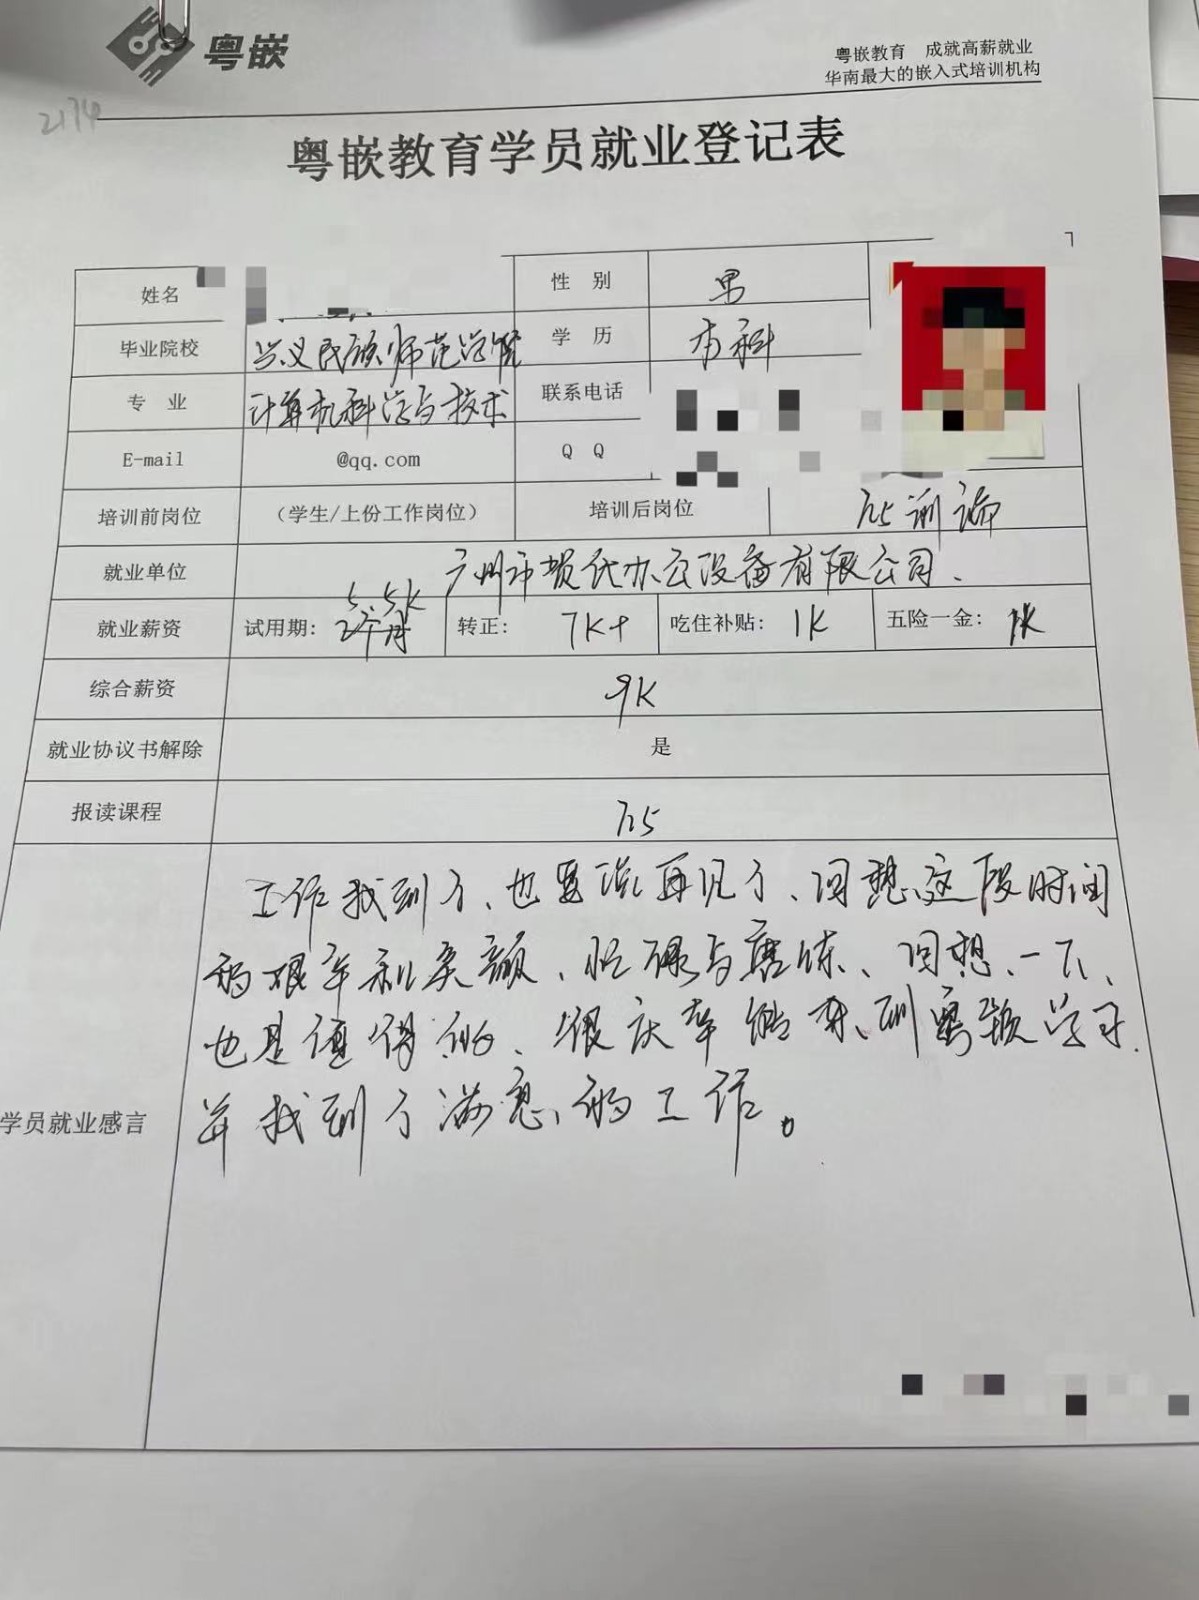 粤嵌
粤嵌教育 成就高薪就业
华南最大的嵌入式培训机构
2174
粤嵌教育学员就业登记表
姓名 性 别 男
毕业院校 兴义民族师范学院 学 历 本科
专 业 计算机科学与技术 联系电话
E-mail @qq.com Q Q
培训前岗位 (学生/上份工作岗位) 培训后岗位 h5
就业单位 广州市 办公设备有限公司
5.5K
就业薪资 试用期: 2个月 转正: 7K+ 吃住补贴: 1K 五险一金: 1K
综合薪资 9K
就业协议书解除 是
报读课程 h5
工作找到了、也要说再见了、回想这段时间
的艰辛和笑颜、忙碌与磨练、回想一下、
也是值得的、很庆幸能来到粤嵌学习.
学员就业感言
并找到了满意的工作。